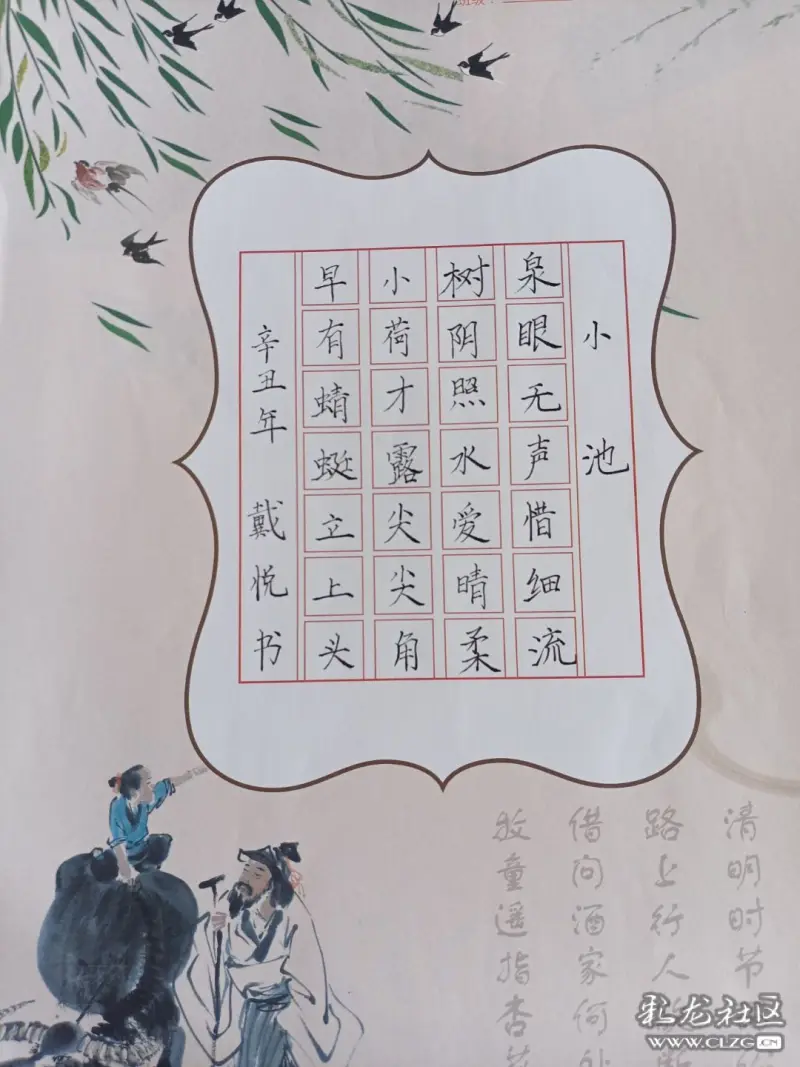 班级：
小池
泉眼无声惜细流
树阴照水爱晴柔
小荷才露尖尖角
早有蜻蜓立上头
辛丑年 戴悦书
清明时节
路上行人
借问酒家何处
牧童遥指杏花
彩龙社区
WWW.CLZG.CN